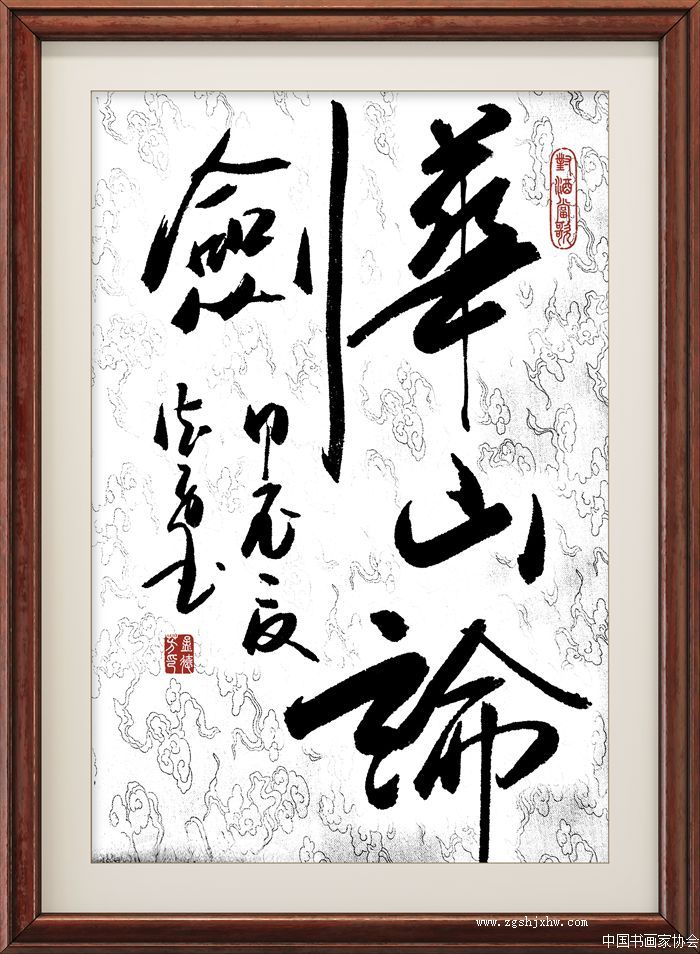 對酒當歌
華山論
劍
甲辰夏
德芳書
www.zgshjxhw.com
中国书画家协会